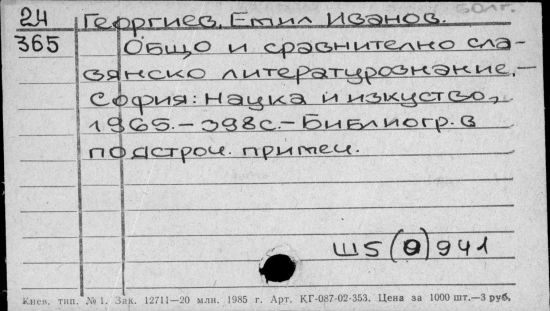 болг.
24 Георгиев, Емил Иванов.
365 Общо и сравнително сла-
вянско литературознание.–
София: Наука и изкуство,
1965.–398с.–Библиогр. в
подстроч. примеч.
Ш5(0)941
Киев. тип. №1. Зак. 12711—20 млн. 1985 г. Арт. КГ-087-02-353. Цена за 1000 шт.—3 руб.